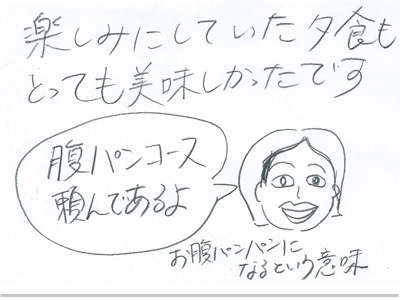 楽しみにしていた夕食も
とっても美味しかったです
腹パンコース
頼んであるよ
お腹パンパンに
なるという意味